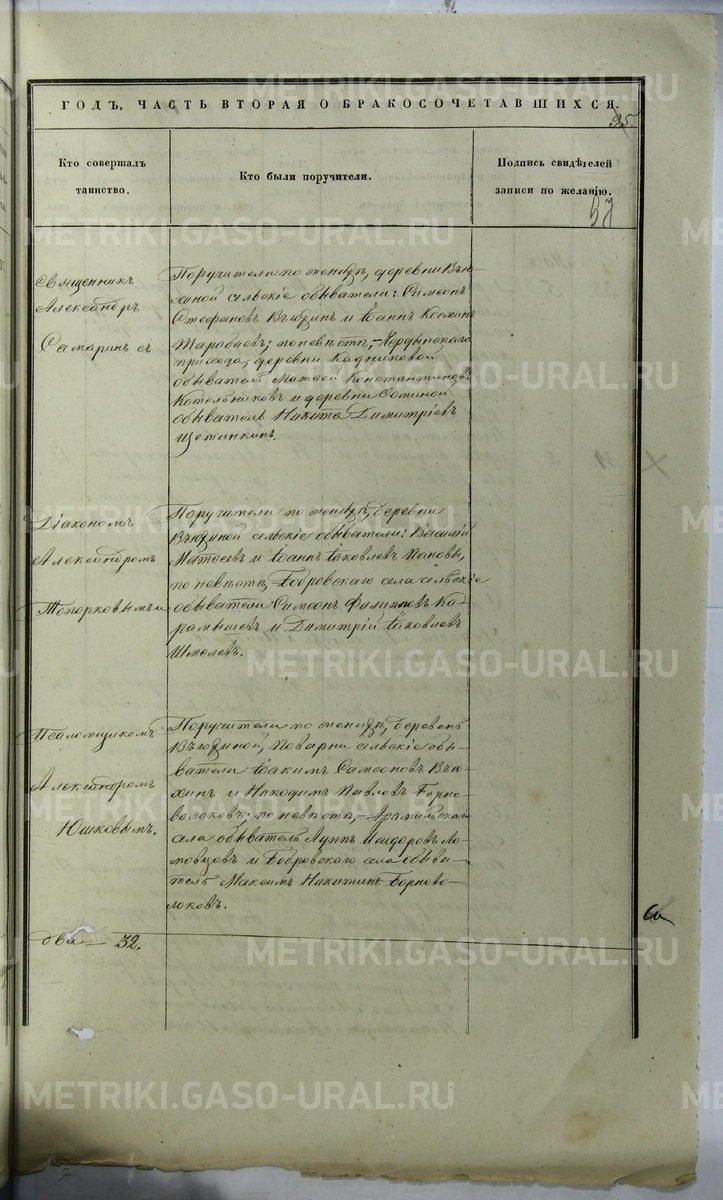 ГОДЪ, ЧАСТЬ ВТОРАЯ О БРАКОСОЧЕТАВШИХСЯ.
35
Кто совершалъ
таинство.
Кто были поручители.
Подпись свидѣтелей
записи по желанію.
Священникъ
Александръ
Самаринъ съ
Поручители по женихѣ, деревни Вью-
хиной сельскіе обыватели: Симеонъ
Стефановъ Вьюхинъ и Іоаннъ Косминъ
Тарабаевъ; по невѣстѣ,
прихода, деревни Кадниковой
обыватель Матѳей Константиновъ
Котельниковъ и деревни
обыватель Никита Димитріевъ
Щетинкинъ.
Діакономъ
Александромъ
Топорковымъ и
Поручители по женихѣ, деревни
Вьюхиной сельскіе обыватели: Василій
Матѳеевъ и Іоаннъ Іаковлевъ Пановы,
по невѣстѣ, Бобровскаго села сельскіе
обыватели Симеонъ Филипповъ Ка-
рамышевъ и Димитрій Іаковлевъ
Шмелевъ.
Псаломщикомъ
Александромъ
Юшковымъ.
Поручители по женихѣ, деревень
Вьюхиной, Поварни сельскіе обы-
ватели Іоакимъ Симеоновъ Вью-
хинъ и Никодимъ Павловъ Черно-
волоковъ; по невѣстѣ, Арамильскаго
села обыватель Луппъ Исидоровъ Ло-
мовцовъ и Бобровскаго села обыва-
тель Максимъ Никитинъ Черново-
локовъ.
два — 32.
METRIKI.GASO-URAL.RU